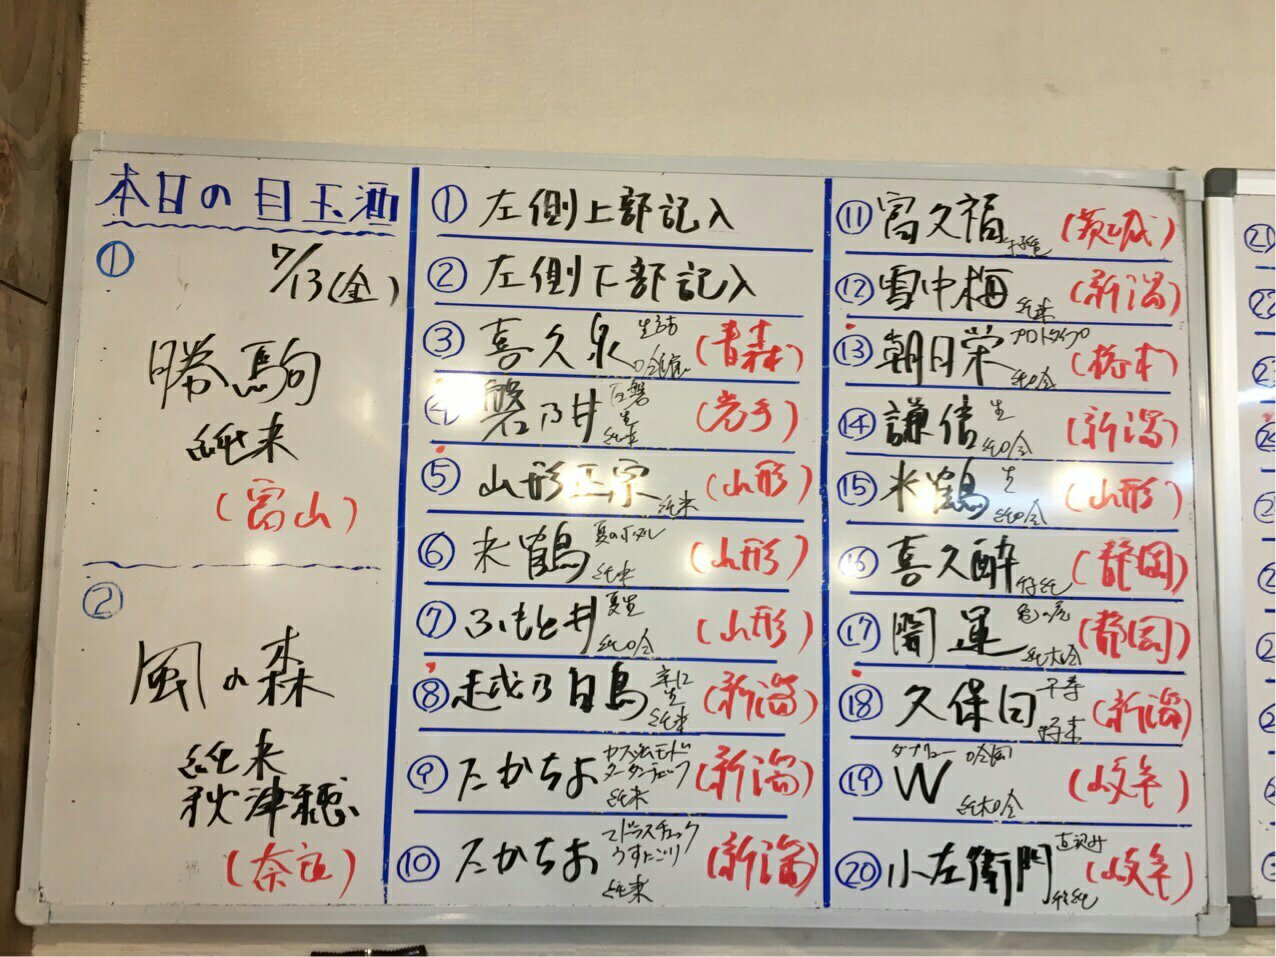 本日の目玉酒
① 7/13(金)
勝駒
純米
(富山)
②
風の森
純米
秋津穂
(奈良)
① 左側上部記入
② 左側下部記入
③ 喜久泉 (青森)
④ 磐乃井 生 (岩手)
⑤ 山形正宗 純米 (山形)
⑥ 米鶴 純米 (山形)
⑦ ふもと井 夏生 純吟 (山形)
⑧ 越乃白鳥 生 純米 (新潟)
⑨ たかちよ カスタムモード
純米 (新潟)
⑩ たかちよ マドラスチェック
うすにごり
純米 (新潟)
⑪ 富久福 (茨城)
⑫ 雪中梅 純米 (新潟)
⑬ 朝日栄 プロトタイプ 純吟 (栃木)
⑭ 謙信 生 純吟 (新潟)
⑮ 米鶴 生 純吟 (山形)
⑯ 喜久酔 特純 (静岡)
⑰ 開運 純大吟 (静岡)
⑱ 久保田 千寿 (新潟)
⑲ ダブリュー
W 純大吟 (岐阜)
⑳ 小左衛門 直汲み 特純 (岐阜)
21
22